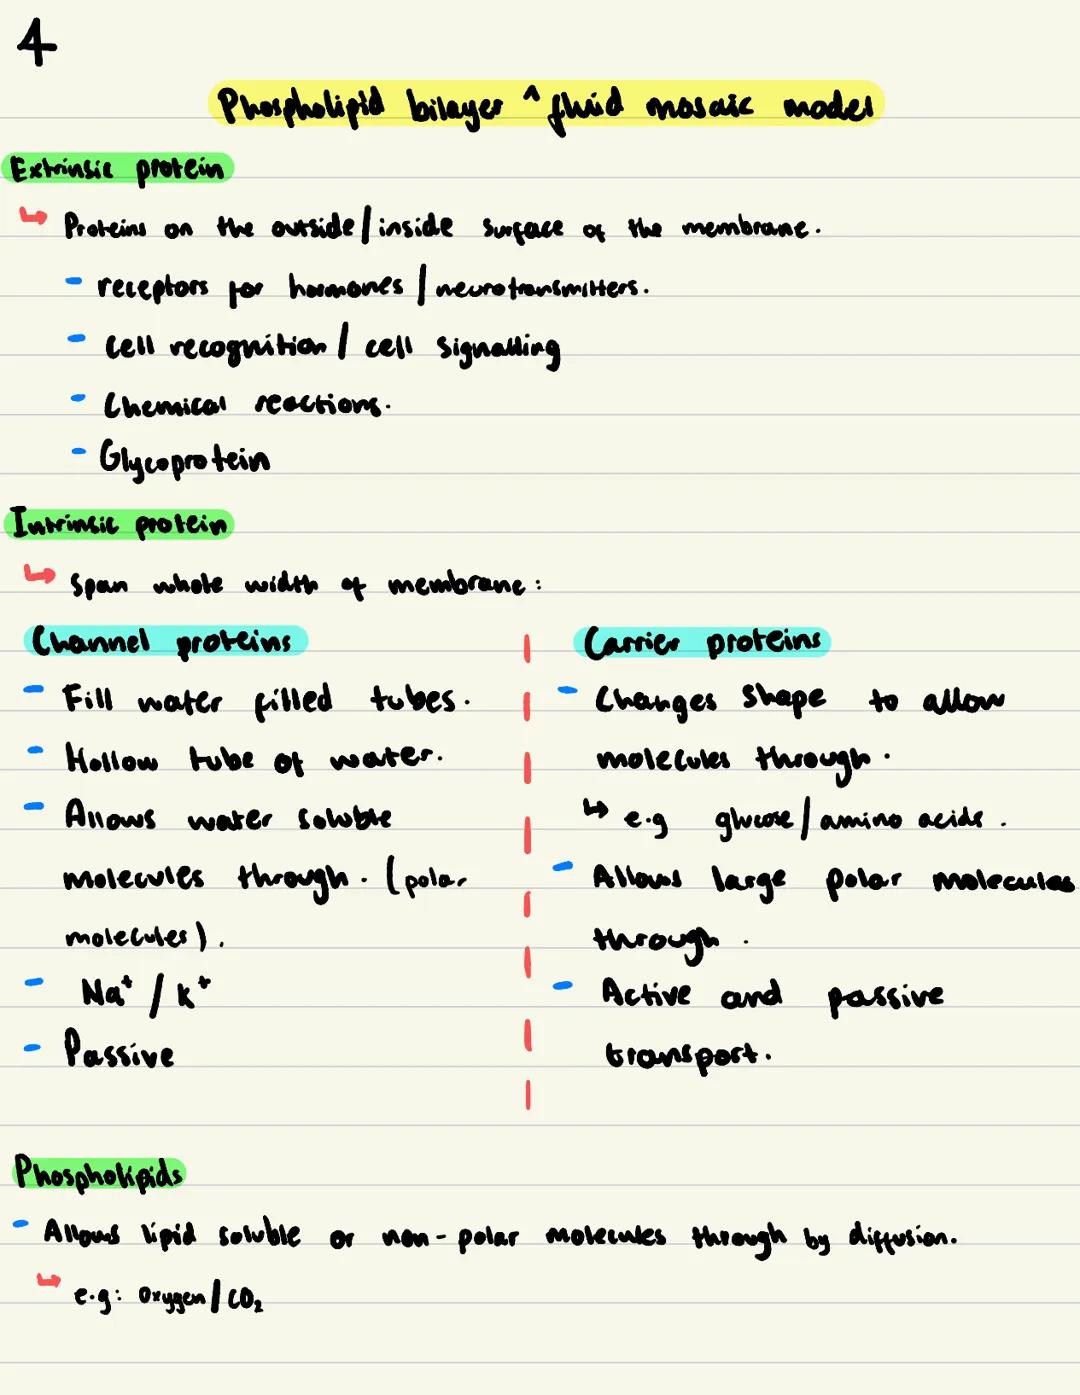 4
Phospholipid bilayer ^ fluid mosaic model
Extrinsic protein
↳ Proteins on the outside/inside surface of the membrane.
- receptors for hormones/neurotransmitters.
- cell recognition/cell signalling
- Chemical reactions.
- Glycoprotein
Intrinsic protein
↳ Span whole width of membrane:
Channel proteins
- Fill water filled tubes.
- Hollow tube of water.
- Allows water soluble
molecules through. (polar
molecules).
- Na⁺/K⁺
- Passive
Carrier proteins
- Changes shape to allow
molecules through.
↳ e.g glucose/amino acids.
- Allows large polar molecules
through.
- Active and passive
transport.
Phospholipids
- Allows lipid soluble or non-polar molecules through by diffusion.
↳ e.g: Oxygen/CO₂